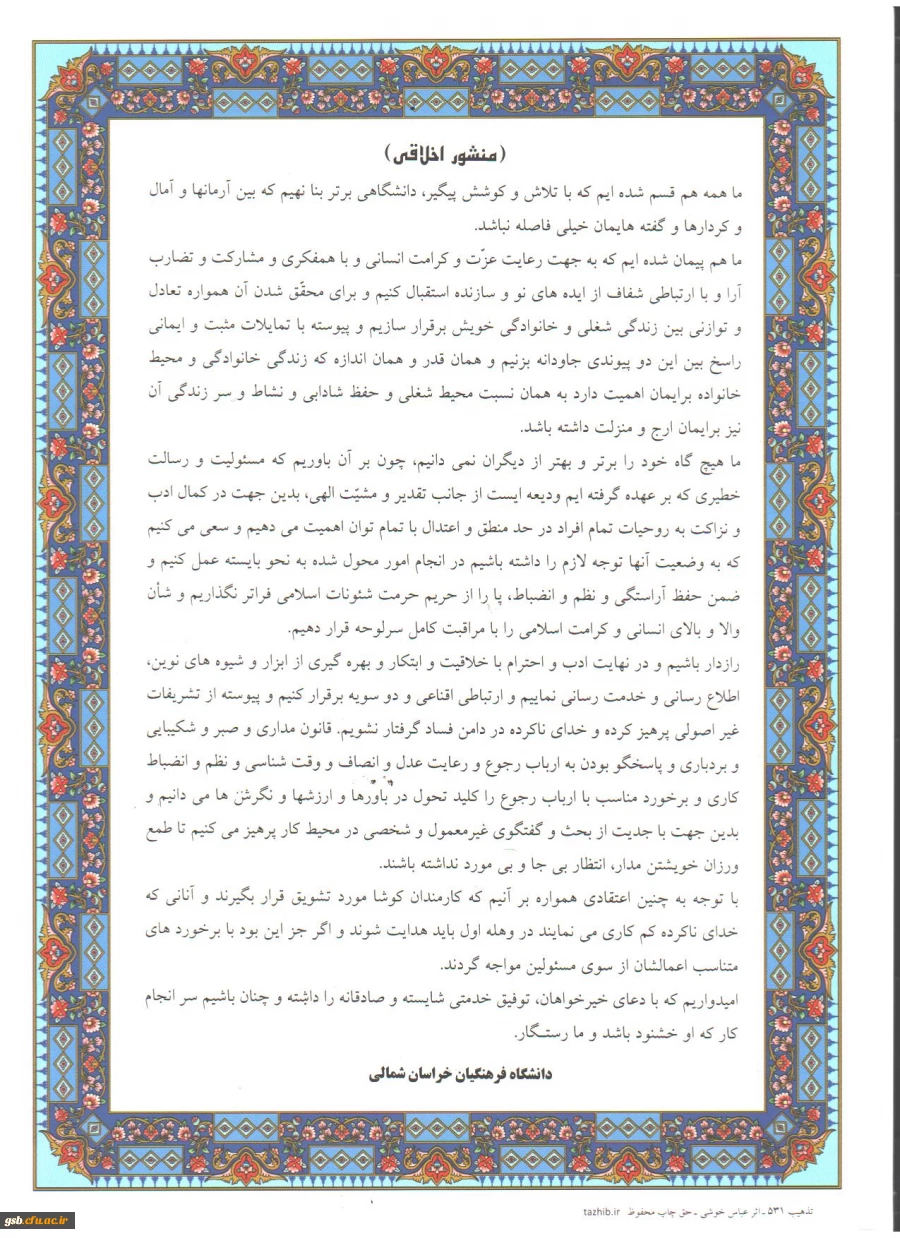 (منشور اخلاقی)
ما همه هم قسم شده ایم که با تلاش و کوشش پیگیر، دانشگاهی برتر بنا نهیم که بین آرمانها و آمال
و کردارها و گفته هایمان خیلی فاصله نباشد.
ما هم پیمان شده ایم که به جهت رعایت عزّت و کرامت انسانی و با همفکری و مشارکت و تضارب
آرا و با ارتباطی شفاف از ایده های نو و سازنده استقبال کنیم و برای محقّق شدن آن همواره تعادل
و توازنی بین زندگی شغلی و خانوادگی خویش برقرار سازیم و پیوسته با تمایلات مثبت و ایمانی
راسخ بین این دو پیوندی جاودانه بزنیم و همان قدر و همان اندازه که زندگی خانوادگی و محیط
خانواده برایمان اهمیت دارد به همان نسبت محیط شغلی و حفظ شادابی و نشاط و سر زندگی آن
نیز برایمان ارج و منزلت داشته باشد.
ما هیچ گاه خود را برتر و بهتر از دیگران نمی دانیم، چون بر آن باوریم که مسئولیت و رسالت
خطیری که بر عهده گرفته ایم ودیعه ایست از جانب تقدیر و مشیّت الهی، بدین جهت در کمال ادب
و نزاکت به روحیات تمام افراد در حد منطق و اعتدال با تمام توان اهمیت می دهیم و سعی می کنیم
که به وضعیت آنها توجه لازم را داشته باشیم در انجام امور محول شده به نحو بایسته عمل کنیم و
ضمن حفظ آراستگی و نظم و انضباط، پا را از حریم حرمت شئونات اسلامی فراتر نگذاریم و شأن
والا و بالای انسانی و کرامت اسلامی را با مراقبت کامل سرلوحه قرار دهیم.
رازدار باشیم و در نهایت ادب و احترام با خلاقیت و ابتکار و بهره گیری از ابزار و شیوه های نوین،
اطلاع رسانی و خدمت رسانی نماییم و ارتباطی اقناعی و دو سویه برقرار کنیم و پیوسته از تشریفات
غیر اصولی پرهیز کرده و خدای ناکرده در دامن فساد گرفتار نشویم. قانون مداری و صبر و شکیبایی
و بردباری و پاسخگو بودن به ارباب رجوع و رعایت عدل و انصاف و وقت شناسی و نظم و انضباط
کاری و برخورد مناسب با ارباب رجوع را کلید تحول در باورها و ارزشها و نگرش ها می دانیم و
بدین جهت با جدیت از بحث و گفتگوی غیرمعمول و شخصی در محیط کار پرهیز می کنیم تا طمع
ورزان خویشتن مدار، انتظار بی جا و بی مورد نداشته باشند.
با توجه به چنین اعتقادی همواره بر آنیم که کارمندان کوشا مورد تشویق قرار بگیرند و آنانی که
خدای ناکرده کم کاری می نمایند در وهله اول باید هدایت شوند و اگر جز این بود با برخورد های
متناسب اعمالشان از سوی مسئولین مواجه گردند.
امیدواریم که با دعای خیرخواهان، توفیق خدمتی شایسته و صادقانه را داشته و چنان باشیم سر انجام
کار که او خشنود باشد و ما رستگار.
دانشگاه فرهنگیان خراسان شمالی
تذهیب ۵۳۱ ـ اثر عباس خوشی ـ حق چاپ محفوظ tazhib.ir
gsb.cfu.ac.ir